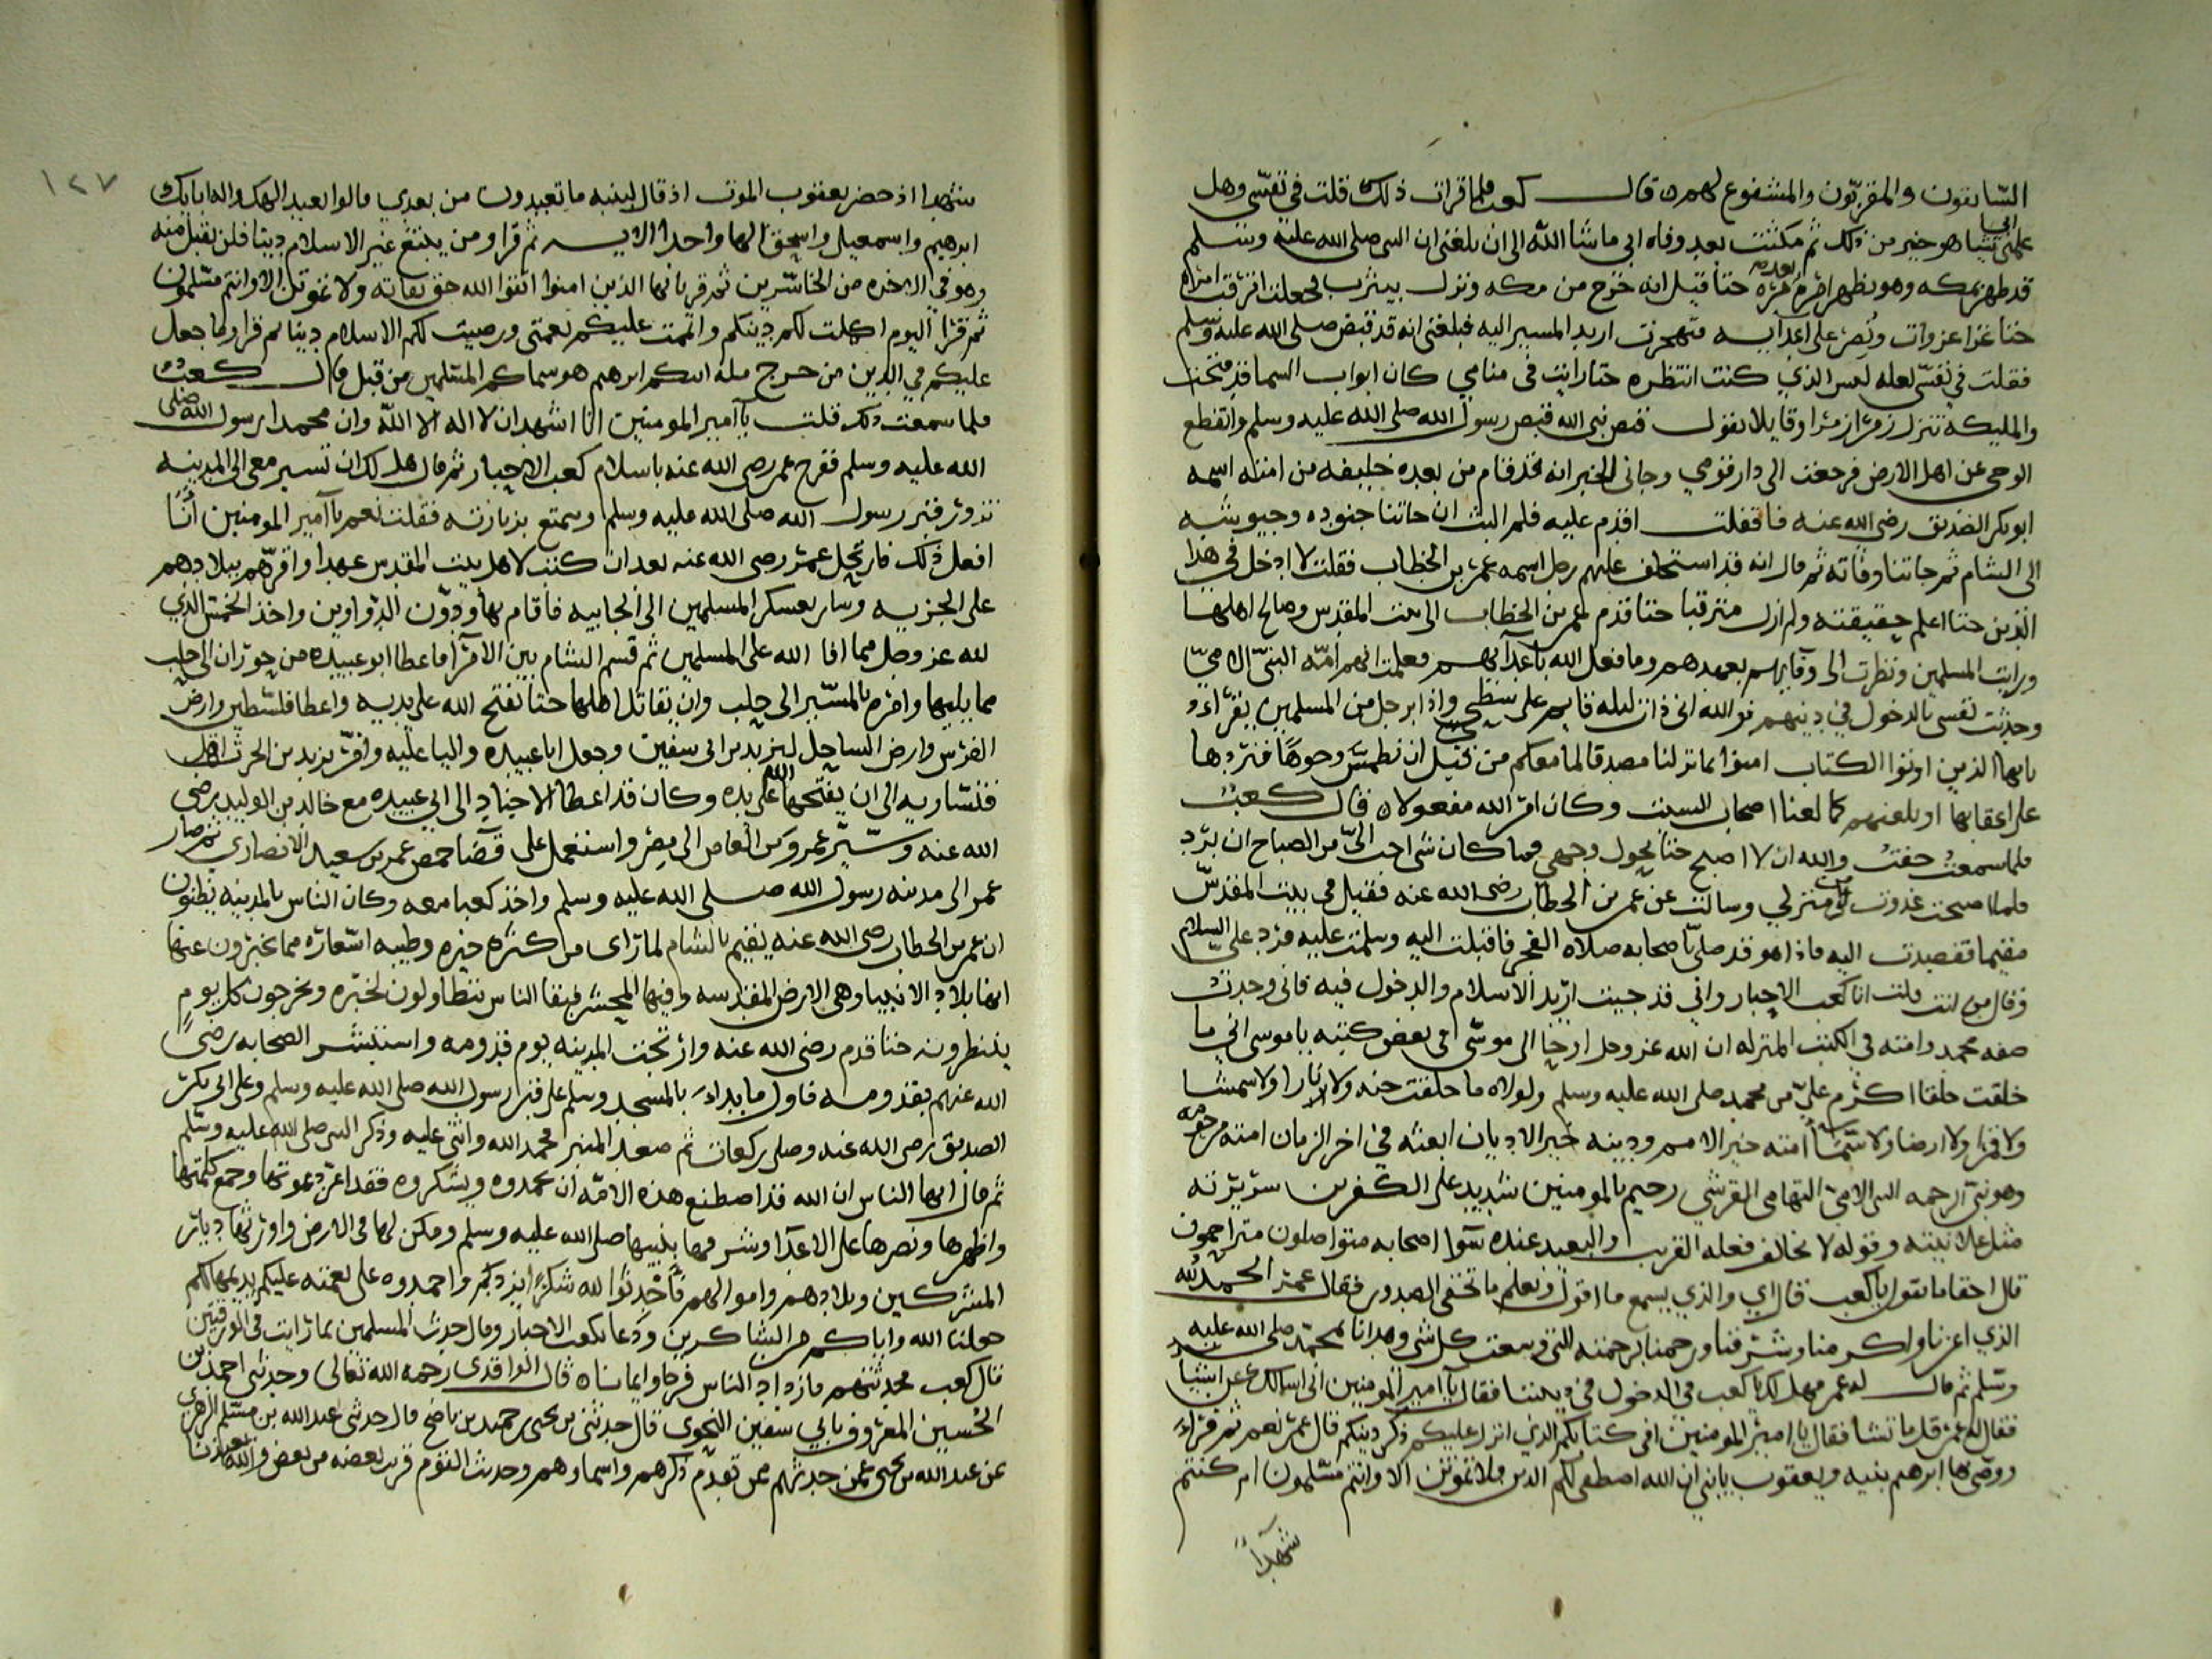 السابقون والمقربون والمشفوع لهم ه قال كعب فلما قرات ذلك قلت في نفسي وهل
علمني ابي شيا هو خير من ذلك ثم مكثت بعد وفاه ابي ما شا الله الى ان بلغني ان النبي صلى الله عليه وسلم
قد ظهر بمكه وهو يظهر امره مره بعد مره حتا قيل انه خرج من مكه ونزل بيثرب فجعلت اترقب امره
حتا غزا غزوات ونصر على اعدايه فتجهزت اريد المسير اليه فبلغني انه قد قبض صلى الله عليه وسلم
فقلت في نفسي لعله ليس الذي كنت انتظره حتا رايت في منامي كان ابواب السما قد فتحت
والمليكه تنزل زمرا زمرا وقايلا يقول قبض نبي الله قبض رسول الله صلى الله عليه وسلم وانقطع
الوحي عن اهل الارض فرجعت الى دار قومي وجاني الخبر انه قد قام من بعده خليفه من امته اسمه
ابو بكر الصديق رضي الله عنه فقلت اقدم عليه فلم البث ان جاتنا جنوده وجيوشه
الى الشام ثم جاتنا وفاته ثم قال انه قد استخلف عليهم رجل اسمه عمر بن الخطاب فقلت لا ادخل في هذا
الدين حتا اعلم حقيقته ولم ازل مترقبا حتا قدم عمر بن الخطاب الى بيت المقدس وصالح اهلها
ورايت المسلمين ونظرت الى وفايهم بعهدهم وما فعل الله باعدايهم فعلمت انهم امه النبي الامي
وحدثت نفسي بالدخول في دينهم فوالله اني ذات ليله قايم على سطحي واذا برجل من المسلمين يقراء و
يايها الذين اوتوا الكتاب امنوا بما نزلنا مصدقا لما معكم من قبل ان نطمس وجوها فنردها
على اعقابها او نلعنهم كما لعنا اصحاب السبت وكان امر الله مفعولا ه قال كعب
فلما سمعت خفت والله ان لا اصبح حتا يحول وجهي فما كان شي احب الي من الصباح ان يرد
فلما اصبحت غدوت من منزلي وسالت عن عمر بن الخطاب رضي الله عنه فقيل في بيت المقدس
مقيما فقصدت اليه فاذا هو قد صلى باصحابه صلاه الفجر فاقبلت اليه وسلمت عليه فرد علي السلام
وقال من انت قلت انا كعب الاحبار واني قد جيت اريد الاسلام والدخول فيه فاني وجدت
صفه محمد وامته في الكتب المنزله ان الله عز وجل اوحا الى موسى في بعض كتبه يا موسى اني ما
خلقت خلقا اكرم علي من محمد صلى الله عليه وسلم ولولاه ما خلقت جنه ولا نارا ولا شمسا
ولا قمرا ولا ارضا ولا سما امته خير الامم ودينه خير الاديان ابعثه في اخر الزمان امته مرحومه
وهو نبي الرحمه النبي الامي التهامي القرشي رحيم بالمومنين شديد على الكفرين سريرته
مثل علانيته وقوله لا يخالف فعله القريب والبعيد عنده سوا اصحابه متواصلون متراحمون
قال احقا ما تقول يا كعب قال اي والذي يسمع ما اقول ويعلم ما تخفي الصدور فقال عمر الحمد لله
الذي اعزنا واكرمنا وشرفنا ورحمنا برحمته التي وسعت كل شي وهدانا بمحمد صلى الله عليه
وسلم ثم قال له عمر فهل لك يا كعب في الدخول في ديننا فقال يا امير المومنين اني اسالك عن اشيا
فقال له عمر قل ما تشا فقال يا امير المومنين افي كتابكم الذي انزل عليكم ذكر دينكم قال عمر نعم ثم قراء
ووصى بها ابرهيم بنيه ويعقوب يا بني ان الله اصطفى لكم الدين فلا تموتن الا وانتم مسلمون ام كنتم
شهداء
١٢٧
شهدا اذ حضر يعقوب الموت اذ قال لبنيه ما تعبدون من بعدي قالوا نعبد الهك واله ابايك
ابرهيم واسمعيل واسحق الها واحدا الايه ثم قرا ومن يبتغ غير الاسلام دينا فلن يقبل منه
وهو في الاخره من الخاسرين ثم قرا يايها الذين امنوا اتقوا الله حق تقاته ولا تموتن الا وانتم مسلمون
ثم قرا اليوم اكملت لكم دينكم واتممت عليكم نعمتي ورضيت لكم الاسلام دينا ثم قرا وما جعل
عليكم في الدين من حرج مله ابيكم ابرهيم هو سماكم المسلمين من قبل قال كعب
فلما سمعت ذلك قلت يا امير المومنين انا اشهد ان لا اله الا الله وان محمدا رسول الله صلى
الله عليه وسلم ففرح عمر رضي الله عنه باسلام كعب الاحبار ثم قال هل لك ان تسير معي الى المدينه
تزور قبر رسول الله صلى الله عليه وسلم وتتمتع بزيارته فقلت نعم يا امير المومنين انا
افعل ذلك فارتحل عمر رضي الله عنه بعد ان كتب لاهل بيت المقدس عهدا واقرهم ببلادهم
على الجزيه وسار بعسكر المسلمين الى الجابيه فاقام بها ودون الدواوين واخذ الخمس الذي
لله عز وجل مما افا الله على المسلمين ثم قسم الشام بين الامرا فاعطا ابو عبيده من حوران الى حلب
مما يليها وامره بالمسير الى حلب وان يقاتل اهلها حتا يفتح الله على يديه واعطا فلسطين وارض
القدس وارض الساحل ليزيد بن ابي سفين وجعل ابا عبيده واليا عليه وامر يزيد بن
ان يفتحها الله على يده وكان قد اعطا الاجناد الى ابي عبيده مع خالد بن الوليد رضي
الله عنه وسير عمرو بن العاص الى مصر واستعمل على قضا حمص عمر بن سعيد الانصاري ثم صار
عمر الى مدينه رسول الله صلى الله عليه وسلم واخذ كعبا معه وكان الناس بالمدينه يظنون
ان عمر بن الخطاب رضي الله عنه يقيم بالشام لما راى من كثره خيره وطيبه اسعاره مما يخبرون عنها
انها بلاد الانبيا وهي الارض المقدسه وفيها المحشر فبقا الناس يتطاولون لخبره ويخرجون كل يوم
ينتظرونه حتا قدم رضي الله عنه وارتجت المدينه يوم قدومه واستبشر الصحابه رضي
الله عنهم بقدومه فاول ما بداء بالمسجد وسلم على قبر رسول الله صلى الله عليه وسلم وعلى ابي بكر
الصديق رضي الله عنه وصلى ركعات ثم صعد المنبر فحمد الله واثنى عليه وذكر النبي صلى الله عليه وسلم
ثم قال ايها الناس ان الله قد اصطنع هذه الامه ان يحمدوه ويشكروه فقد اعز دعوتها وجمع كلمتها
واظهرها ونصرها على الاعدا وشرفها بنبيها صلى الله عليه وسلم ومكن لها في الارض واورثها ديار
المشركين وبلادهم واموالهم فاحدثوا لله شكرا يزدكم واحمدوه على نعمته عليكم يديمها لكم
جعلنا الله واياكم من الشاكرين ودعا بكعب الاحبار وقال حدث المسلمين بما رايت في
قال كعب فحدثتهم فازداد الناس فرحا وايمانا ه قال الواقدي رحمه الله تعالى وحدثني احمد بن
الحسين المعروف بابي سفين النحوي قال حدثني بن يحيى بن حميد بن ناضح قال حدثني عبد الله بن مسلم الزهري
عن عبد الله بن يحيى عمن حدثهم ممن تقدم ذكرهم واسماوهم وحديث القوم قريب بعضه من بعض والله